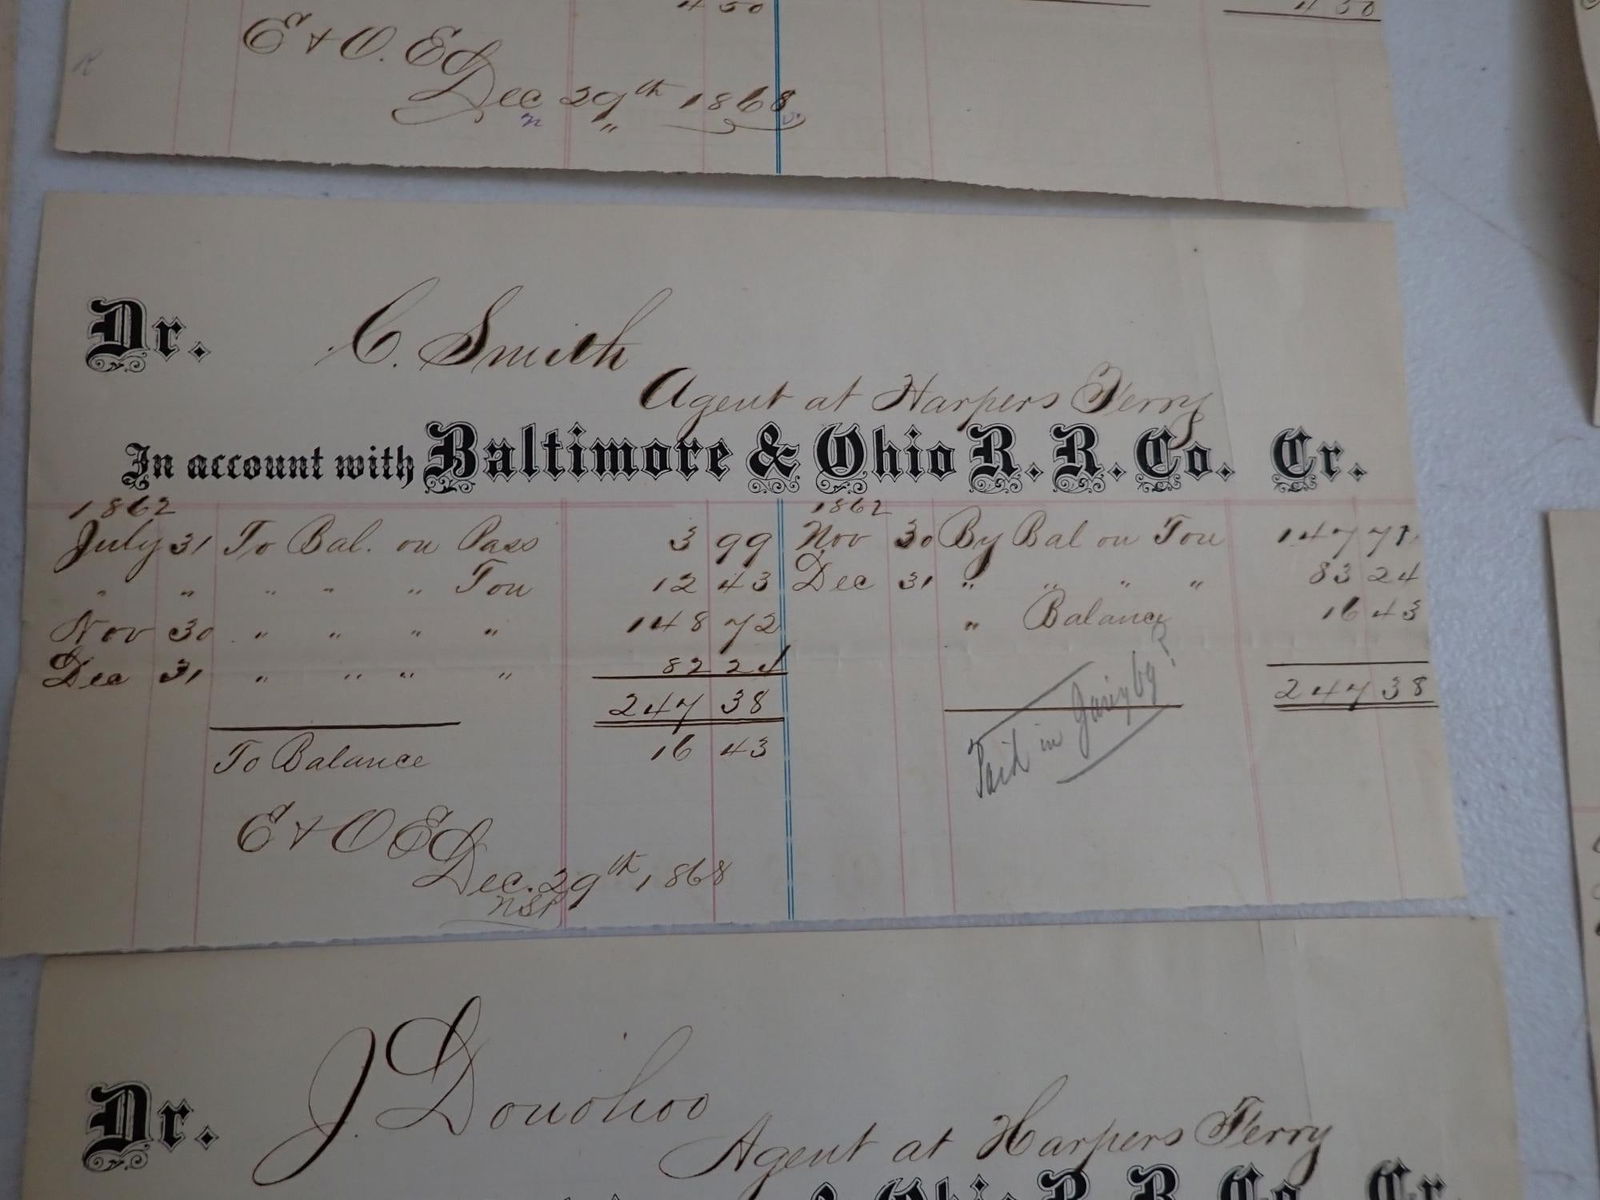 4 50 4 50
E & O. Ed
Dec 29th 1868
Dr. C. Smith
Agent at Harpers Ferry
In account with Baltimore & Ohio R. R. Co. Cr.
1862 1862
July 31 To Bal. on Pass 3 99 Nov 30 By Bal on Ton 147 71
" " " " " Ton 12 43 Dec 31 " " " " 83 24
Nov 30 " " " " 148 72 " Balance 16 43
Dec 31 " " " " 82 24
247 38 247 38
To Balance 16 43
Paid in
E & O Ed
Dec. 29th, 1868
Dr. J. Donohoo
Agent at Harpers Ferry
& Ohio R. R. Co. Cr